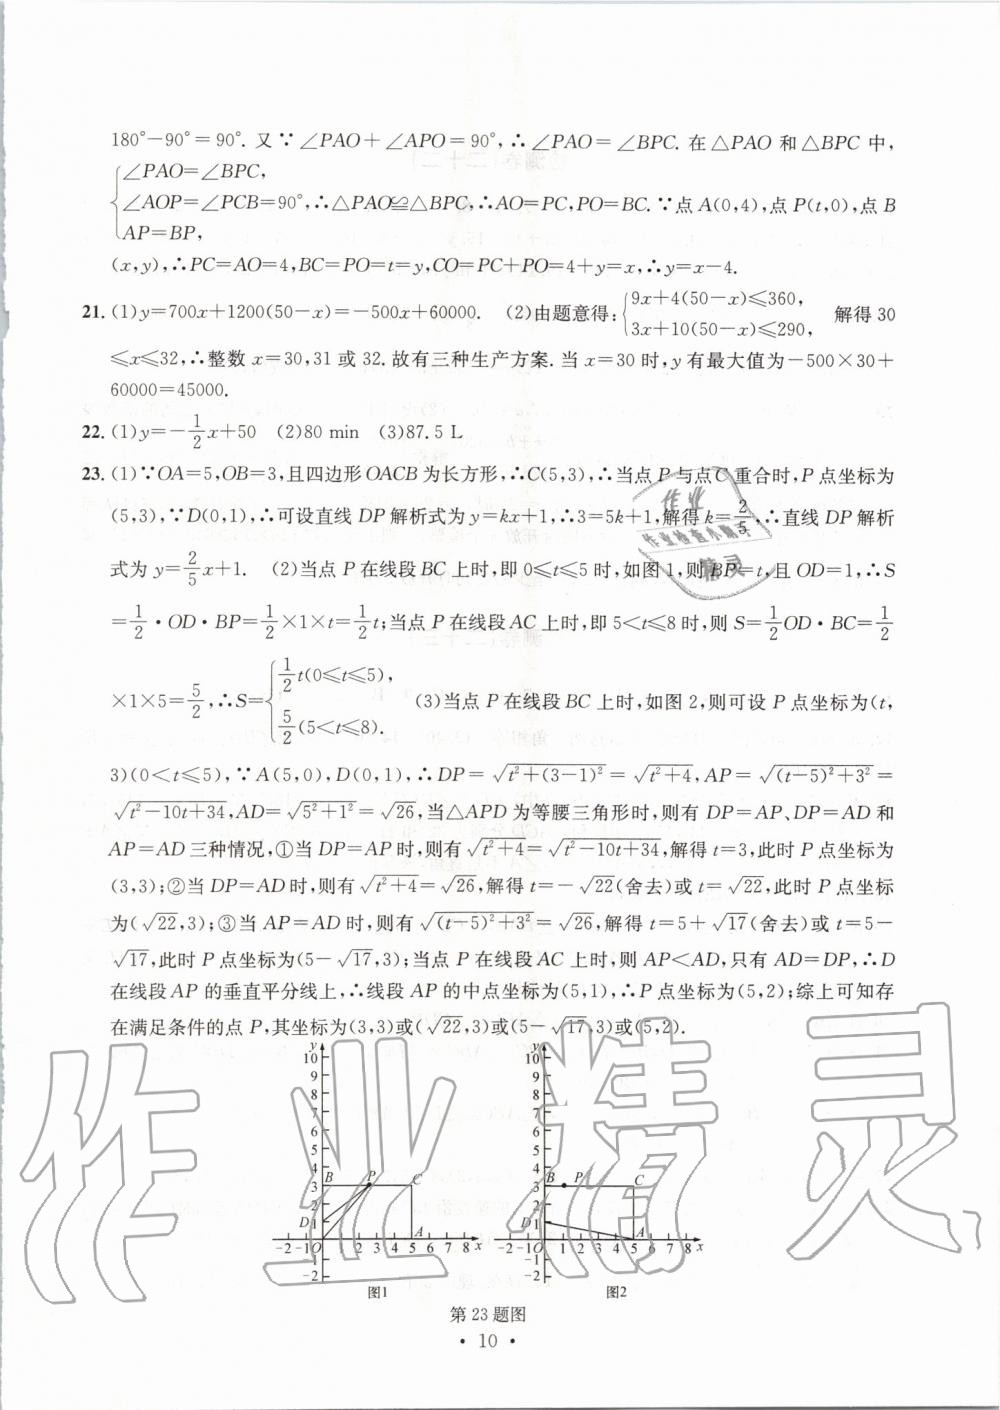 180°－90°＝90°. 又∵∠PAO＋∠APO＝90°,∴∠PAO＝∠BPC. 在△PAO 和△BPC 中,
∠PAO＝∠BPC,
∠AOP＝∠PCB＝90°,∴△PAO≌△BPC,∴AO＝PC,PO＝BC.∵点 A(0,4),点 P(t,0),点 B
AP＝BP,
(x,y),∴PC＝AO＝4,BC＝PO＝t＝y,CO＝PC＋PO＝4＋y＝x,∴y＝x－4.
21. (1)y＝700x＋1200(50－x)＝－500x＋60000. (2)由题意得:{9x＋4(50－x)≤360, 3x＋10(50－x)≤290, 解得 30
≤x≤32,∴整数 x＝30,31 或 32. 故有三种生产方案. 当 x＝30 时,y 有最大值为－500×30＋
60000＝45000.
22. (1)y＝－1/2x＋50 (2)80 min (3)87.5 L
23. (1)∵OA＝5,OB＝3,且四边形 OACB 为长方形,∴C(5,3),∴当点 P 与点 C 重合时,P 点坐标为
(5,3),∵D(0,1),∴可设直线 DP 解析式为 y＝kx＋1,∴3＝5k＋1,解得 k＝2/5,∴直线 DP 解析
式为 y＝2/5x＋1. (2)当点 P 在线段 BC 上时,即 0≤t≤5 时,如图 1,则 BP＝t,且 OD＝1,∴S
＝1/2·OD·BP＝1/2×1×t＝1/2t;当点 P 在线段 AC 上时,即 5＜t≤8 时,则 S＝1/2OD·BC＝1/2
×1×5＝5/2,∴S＝{1/2t(0≤t≤5), 5/2(5＜t≤8). (3)当点 P 在线段 BC 上时,如图 2,则可设 P 点坐标为(t,
3)(0＜t≤5),∵A(5,0),D(0,1),∴DP＝√(t²＋(3－1)²)＝√(t²＋4),AP＝√((t－5)²＋3²)＝
√(t²－10t＋34),AD＝√(5²＋1²)＝√26,当△APD 为等腰三角形时,则有 DP＝AP、DP＝AD 和
AP＝AD 三种情况,①当 DP＝AP 时,则有√(t²＋4)＝√(t²－10t＋34),解得 t＝3,此时 P 点坐标为
(3,3);②当 DP＝AD 时,则有√(t²＋4)＝√26,解得 t＝－√22(舍去)或 t＝√22,此时 P 点坐标
为(√22,3);③当 AP＝AD 时,则有√((t－5)²＋3²)＝√26,解得 t＝5＋√17(舍去)或 t＝5－
√17,此时 P 点坐标为(5－√17,3);当点 P 在线段 AC 上时,则 AP＜AD,只有 AD＝DP,∴D
在线段 AP 的垂直平分线上,∴线段 AP 的中点坐标为(5,1),∴P 点坐标为(5,2);综上可知存
在满足条件的点 P,其坐标为(3,3)或(√22,3)或(5－√17,3)或(5,2).
y
10
9
8
7
6
5
4
3
2
1
B P C
D
A
－2 －1 O 1 2 3 4 5 6 7 8 x
－1
－2
图1
y
10
9
8
7
6
5
4
3
2
1
B P C
D
A
－2 －1 O 1 2 3 4 5 6 7 8 x
－1
－2
图2
第 23 题图
· 10 ·
作业
作业检查小助手
精灵
作业精灵